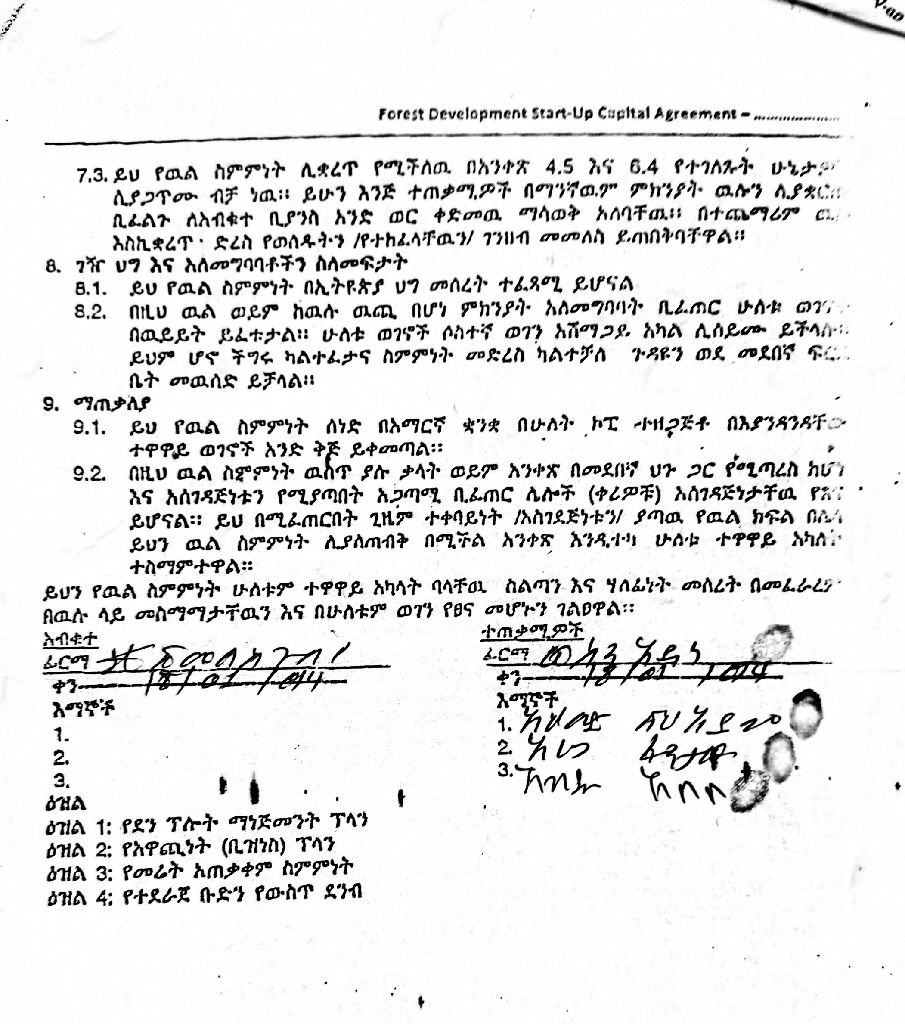 Forest Development Start-Up Capital Agreement – ....................
7.3. ይህ የዉል ስምምነት ሊቋረጥ የሚችለዉ በአንቀጽ 4.5 እና 6.4 የተገለጹት ሁኔታዎ
ሲያጋጥሙ ብቻ ነዉ። ይሁን እንጅ ተጠቃሚዎች በማንኛዉም ምክንያት ዉሉን ሊያቋር
ቢፈልጉ ለአብቁተ ቢያንስ አንድ ወር ቀድመዉ ማሳወቅ አለባቸዉ። በተጨማሪም
እስኪቋረጥ ድረስ የወሰዱትን /የተከፈላቸዉን/ ገንዘብ መመለስ ይጠበቅባቸዋል።
8. ገዥ ህግ እና አለመግባባቶችን ስለመፍታት
8.1. ይህ የዉል ስምምነት በኢትዩጵያ ህግ መሰረት ተፈጻሚ ይሆናል
8.2. በዚህ ዉል ወይም ከዉሉ ዉጪ በሆነ ምክንያት አለመግባባት ቢፈጠር ሁለቱ ወገ
በዉይይት ይፈቱታል። ሁለቱ ወገኖች ሶስተኛ ወገን አሸማጋይ አካል ሊሰይሙ ይችላሉ።
ይህም ሆኖ ችግሩ ካልተፈታና ስምምነት መድረስ ካልተቻለ ጉዳዩን ወደ መደበኛ ፍር
ቤት መዉሰድ ይቻላል።
9. ማጠቃለያ
9.1. ይህ የዉል ስምምነት ሰነድ በአማርኛ ቋንቋ በሁለት ኮፒ ተዘጋጅቶ በእያንዳንዳቸ
ተዋዋይ ወገኖች አንድ ቅጅ ይቀመጣል።
9.2. በዚህ ዉል ስምምነት ዉስጥ ያሉ ቃላት ወይም አንቀጽ በመደበኛ ህጉ ጋር የሚጣረስ ከሆነ
እና አስገዳጅነቱን የሚያጣበት አጋጣሚ ቢፈጠር ሌሎች (ቀሪዎቹ) አስገዳጅነታቸዉ የጸና
ይሆናል። ይህ በሚፈጠርበት ጊዜም ተቀባይነት /አስገደጅነቱን/ ያጣዉ የዉል ክፍል በሌላ
ይህን ዉል ስምምነት ሊያስጠብቅ በሚችል አንቀጽ እንዲተካ ሁለቱ ተዋዋይ አካላት
ተስማምተዋል።
ይህን የዉል ስምምነት ሁለቱም ተዋዋይ አካላት ባላቸዉ ስልጣን እና ሃላፊነት መሰረት በመፈራረም
በዉሉ ላይ መስማማታቸዉን እና በሁለቱም ወገን የፀና መሆኑን ገልፀዋል።
አብቁተ
ፊርማ
ቀን
እማኞች
1.
2.
3.
ዕዝል
ዕዝል 1: የደን ፕሎት ማኔጅመንት ፕላን
ዕዝል 2: የአዋጪነት (ቢዝነስ) ፕላን
ዕዝል 3: የመሬት አጠቃቀም ስምምነት
ዕዝል 4: የተደራጀ ቡድን የውስጥ ደንብ
ተጠቃሚዎች
ፊርማ
ቀን
እማኞች
1.
2.
3.